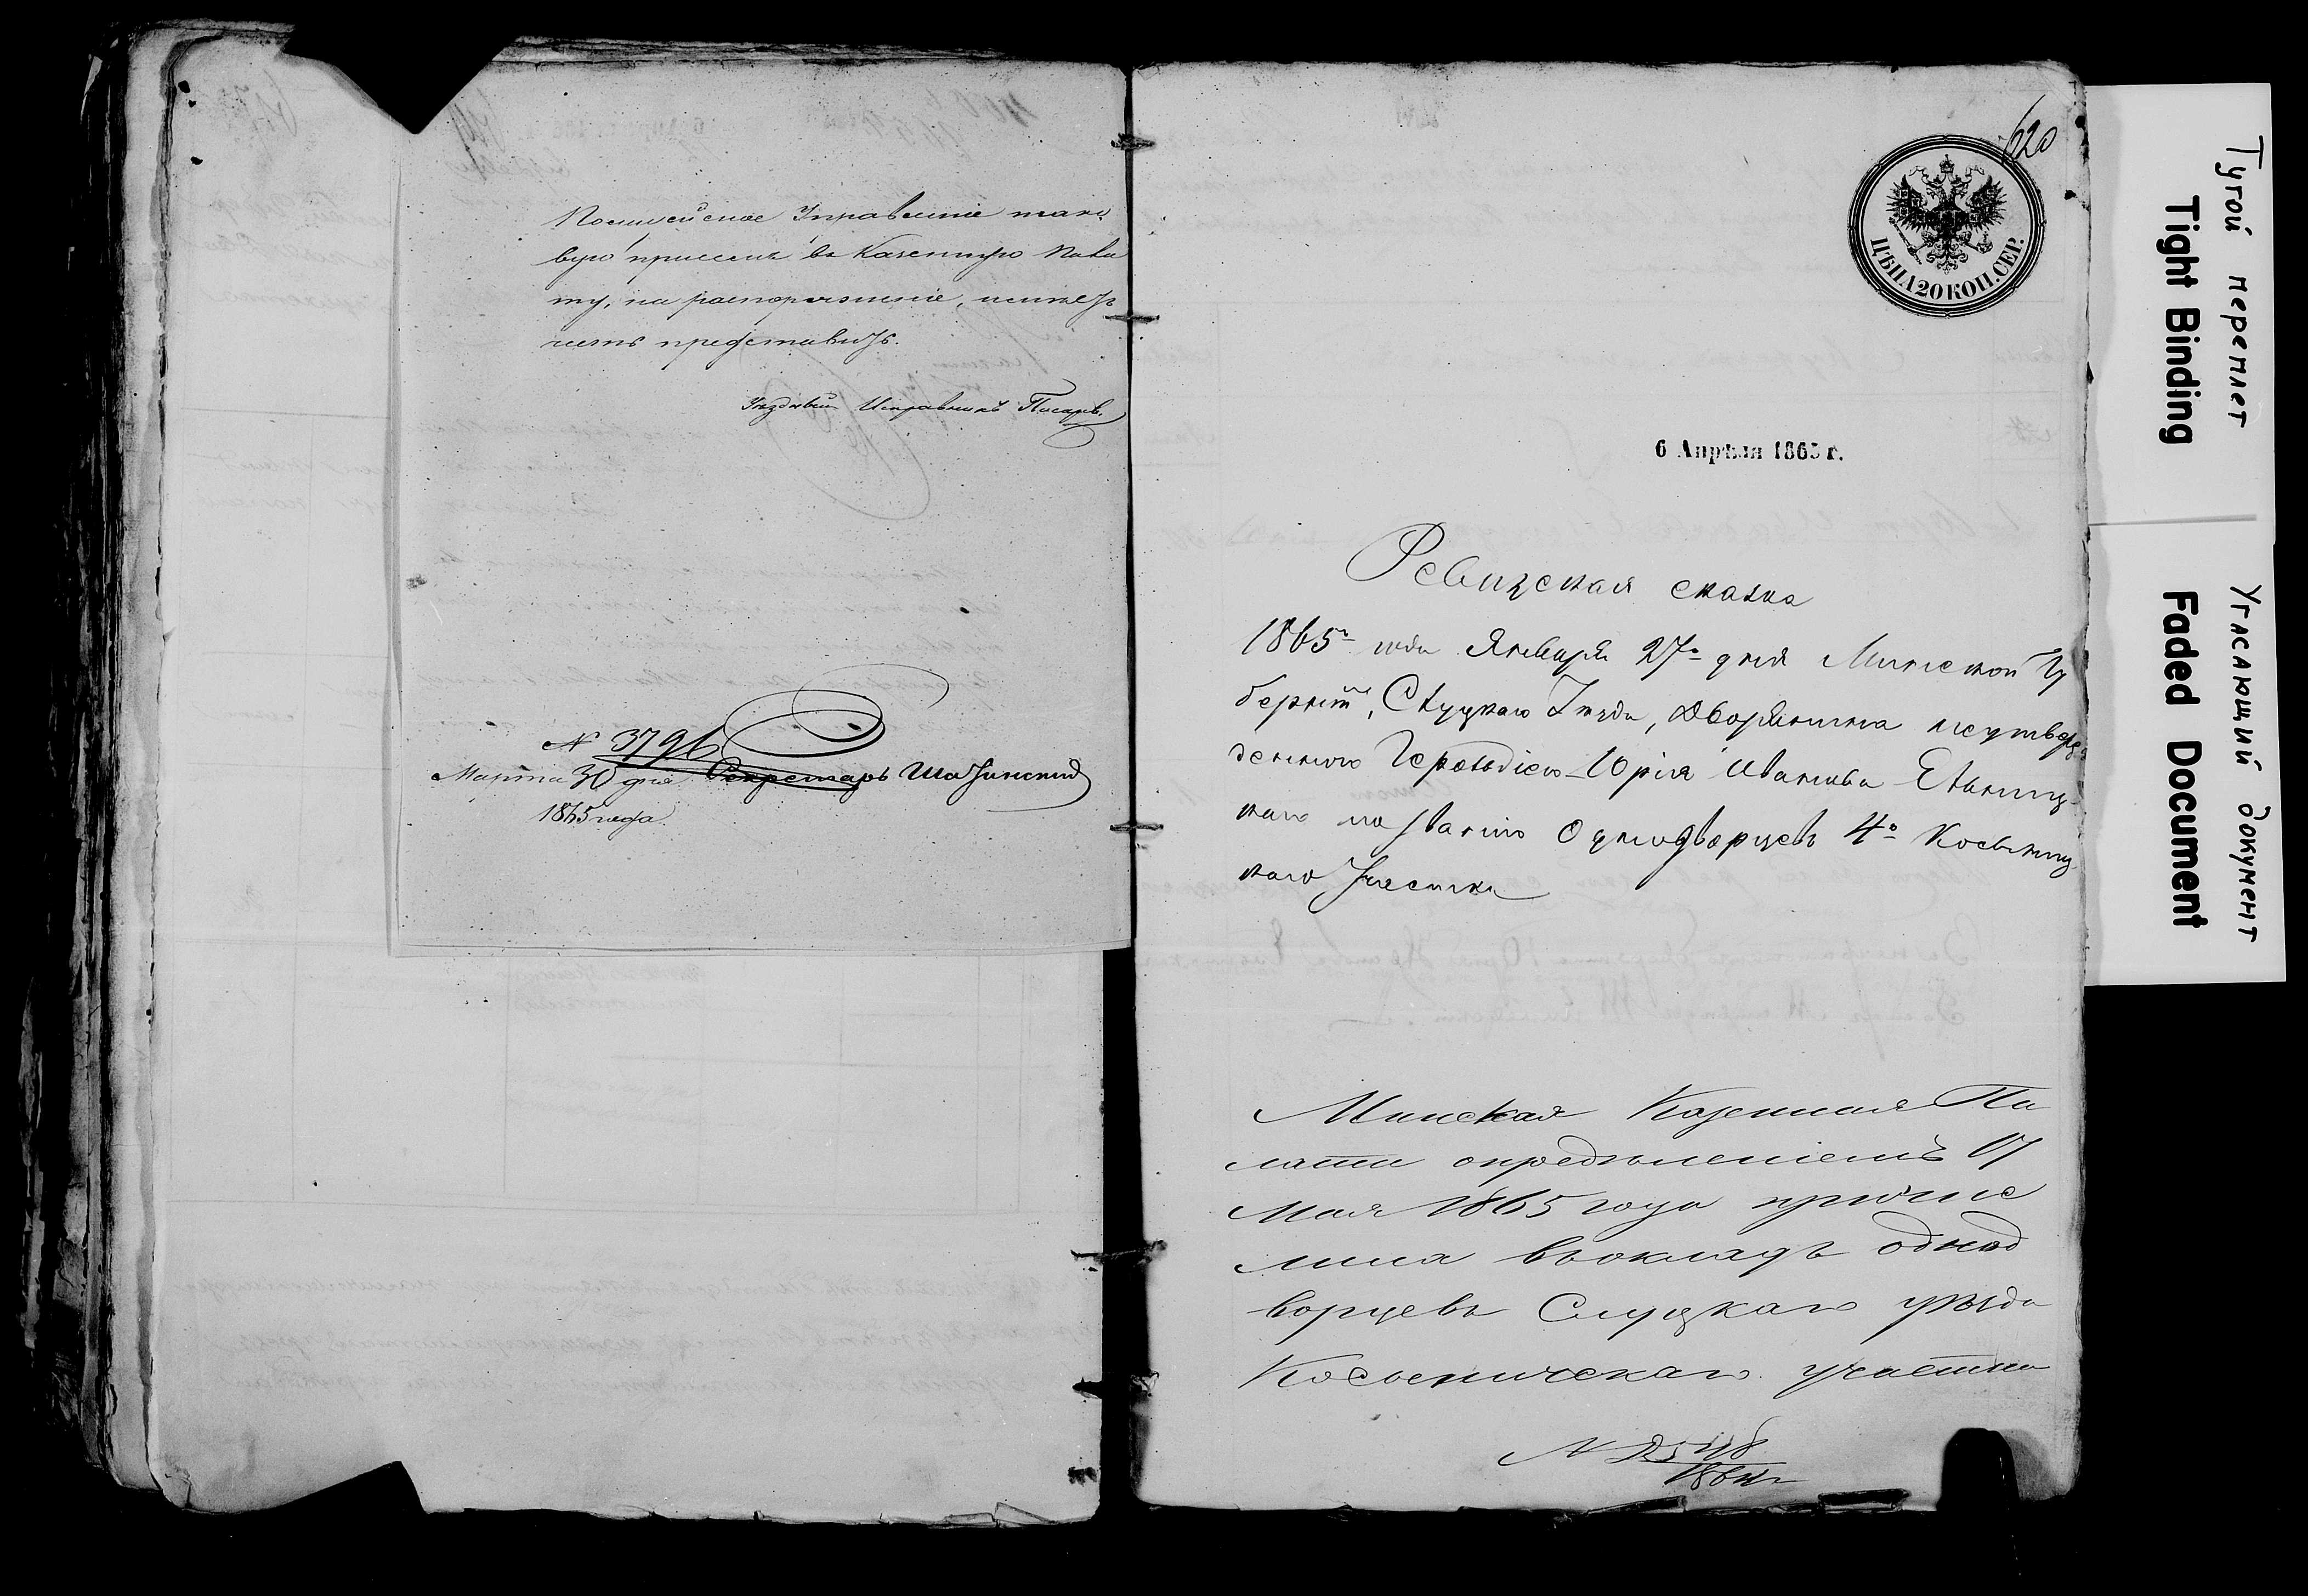 Полицейское Управленіе тако
вую причемъ въ Казенную Пала
ту, на распоряженіе,
представить.
Уѣздный Исправникъ Писарв.
N 3796
Марта 30 дня Секретарь
1865 года.
620
ЦѢНА 20 КОП. СЕР.
6 Апрѣля 1865 г.
Ревизская сказка
1865го года Января 27го дня Минской Гу
берніи, Слуцкаго Уѣзда, Дворянина неутверж
деннаго Герольдіею Юрія Иванова
каго по званію Однодворцевъ 4го Косыниц
каго Участка
Минская Казенная Па
лата опредѣленіемъ 17
Мая 1865 года причис
лила въ окладъ однод
ворцевъ Слуцкаго уѣзда
Косыничскаго участка
N
Тугой переплет
Tight Binding
Угасающий документ
Faded Document